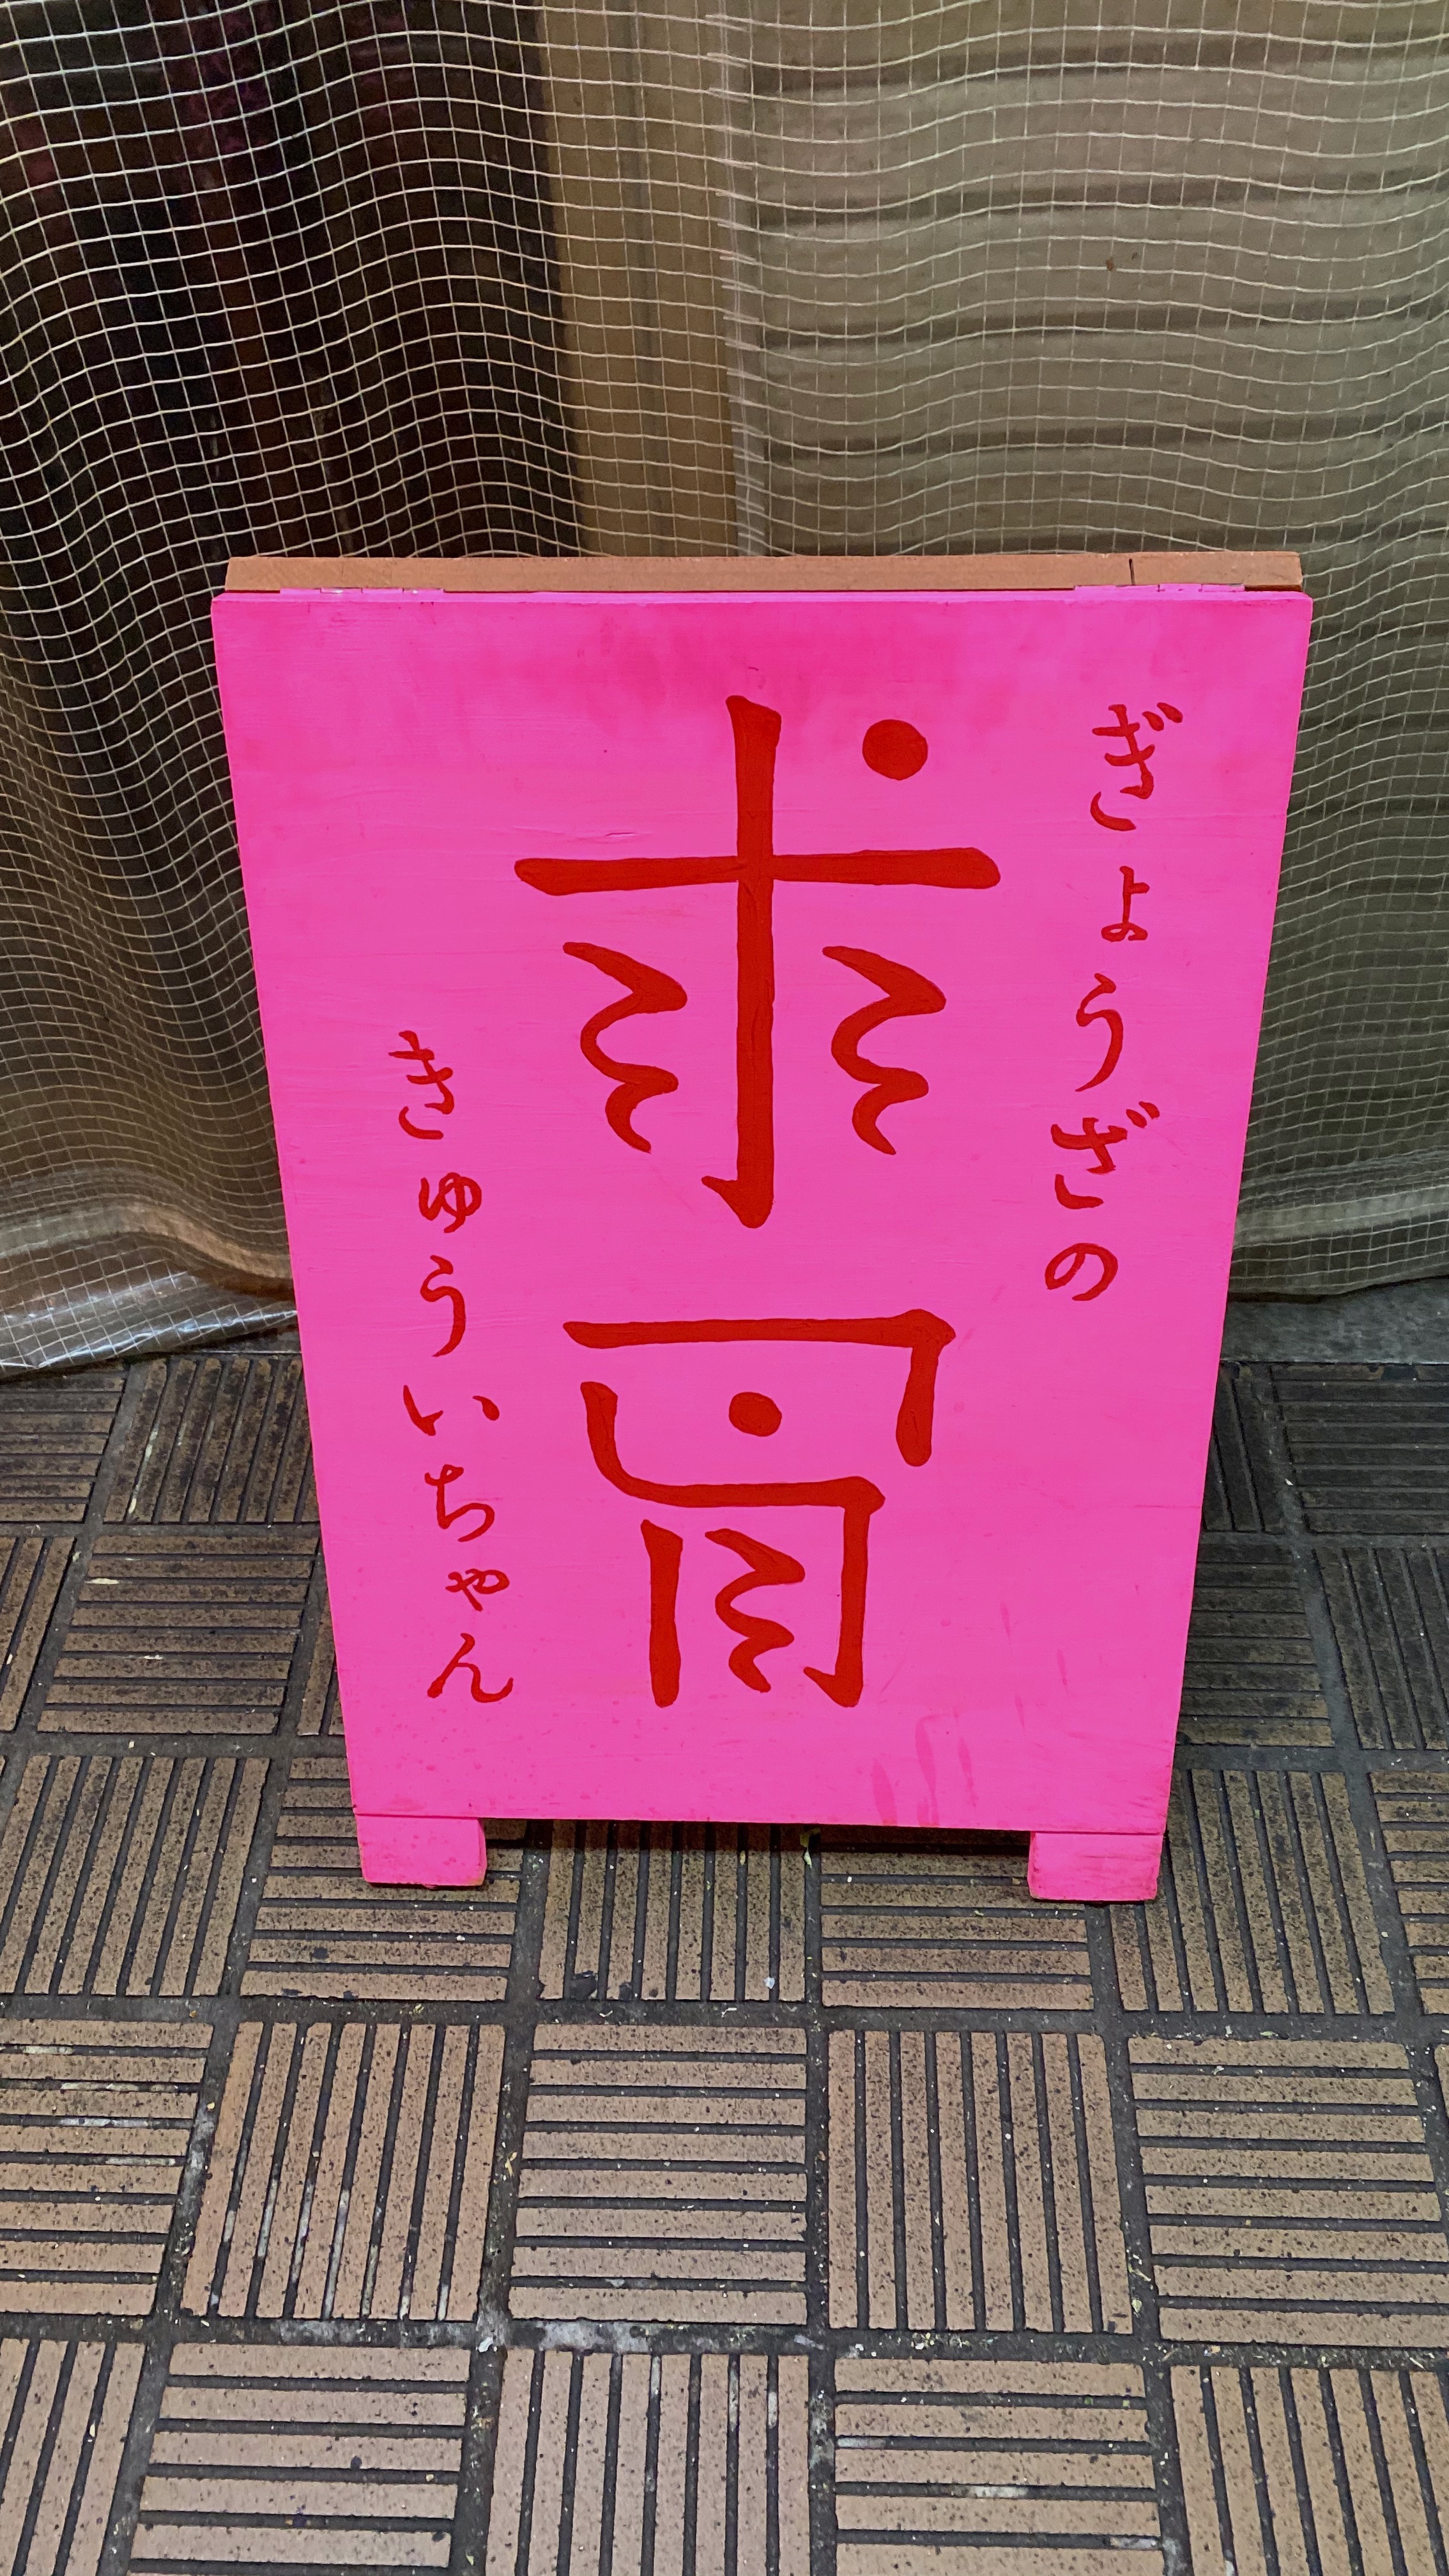 ぎょうざの
求胃
きゅういちゃん